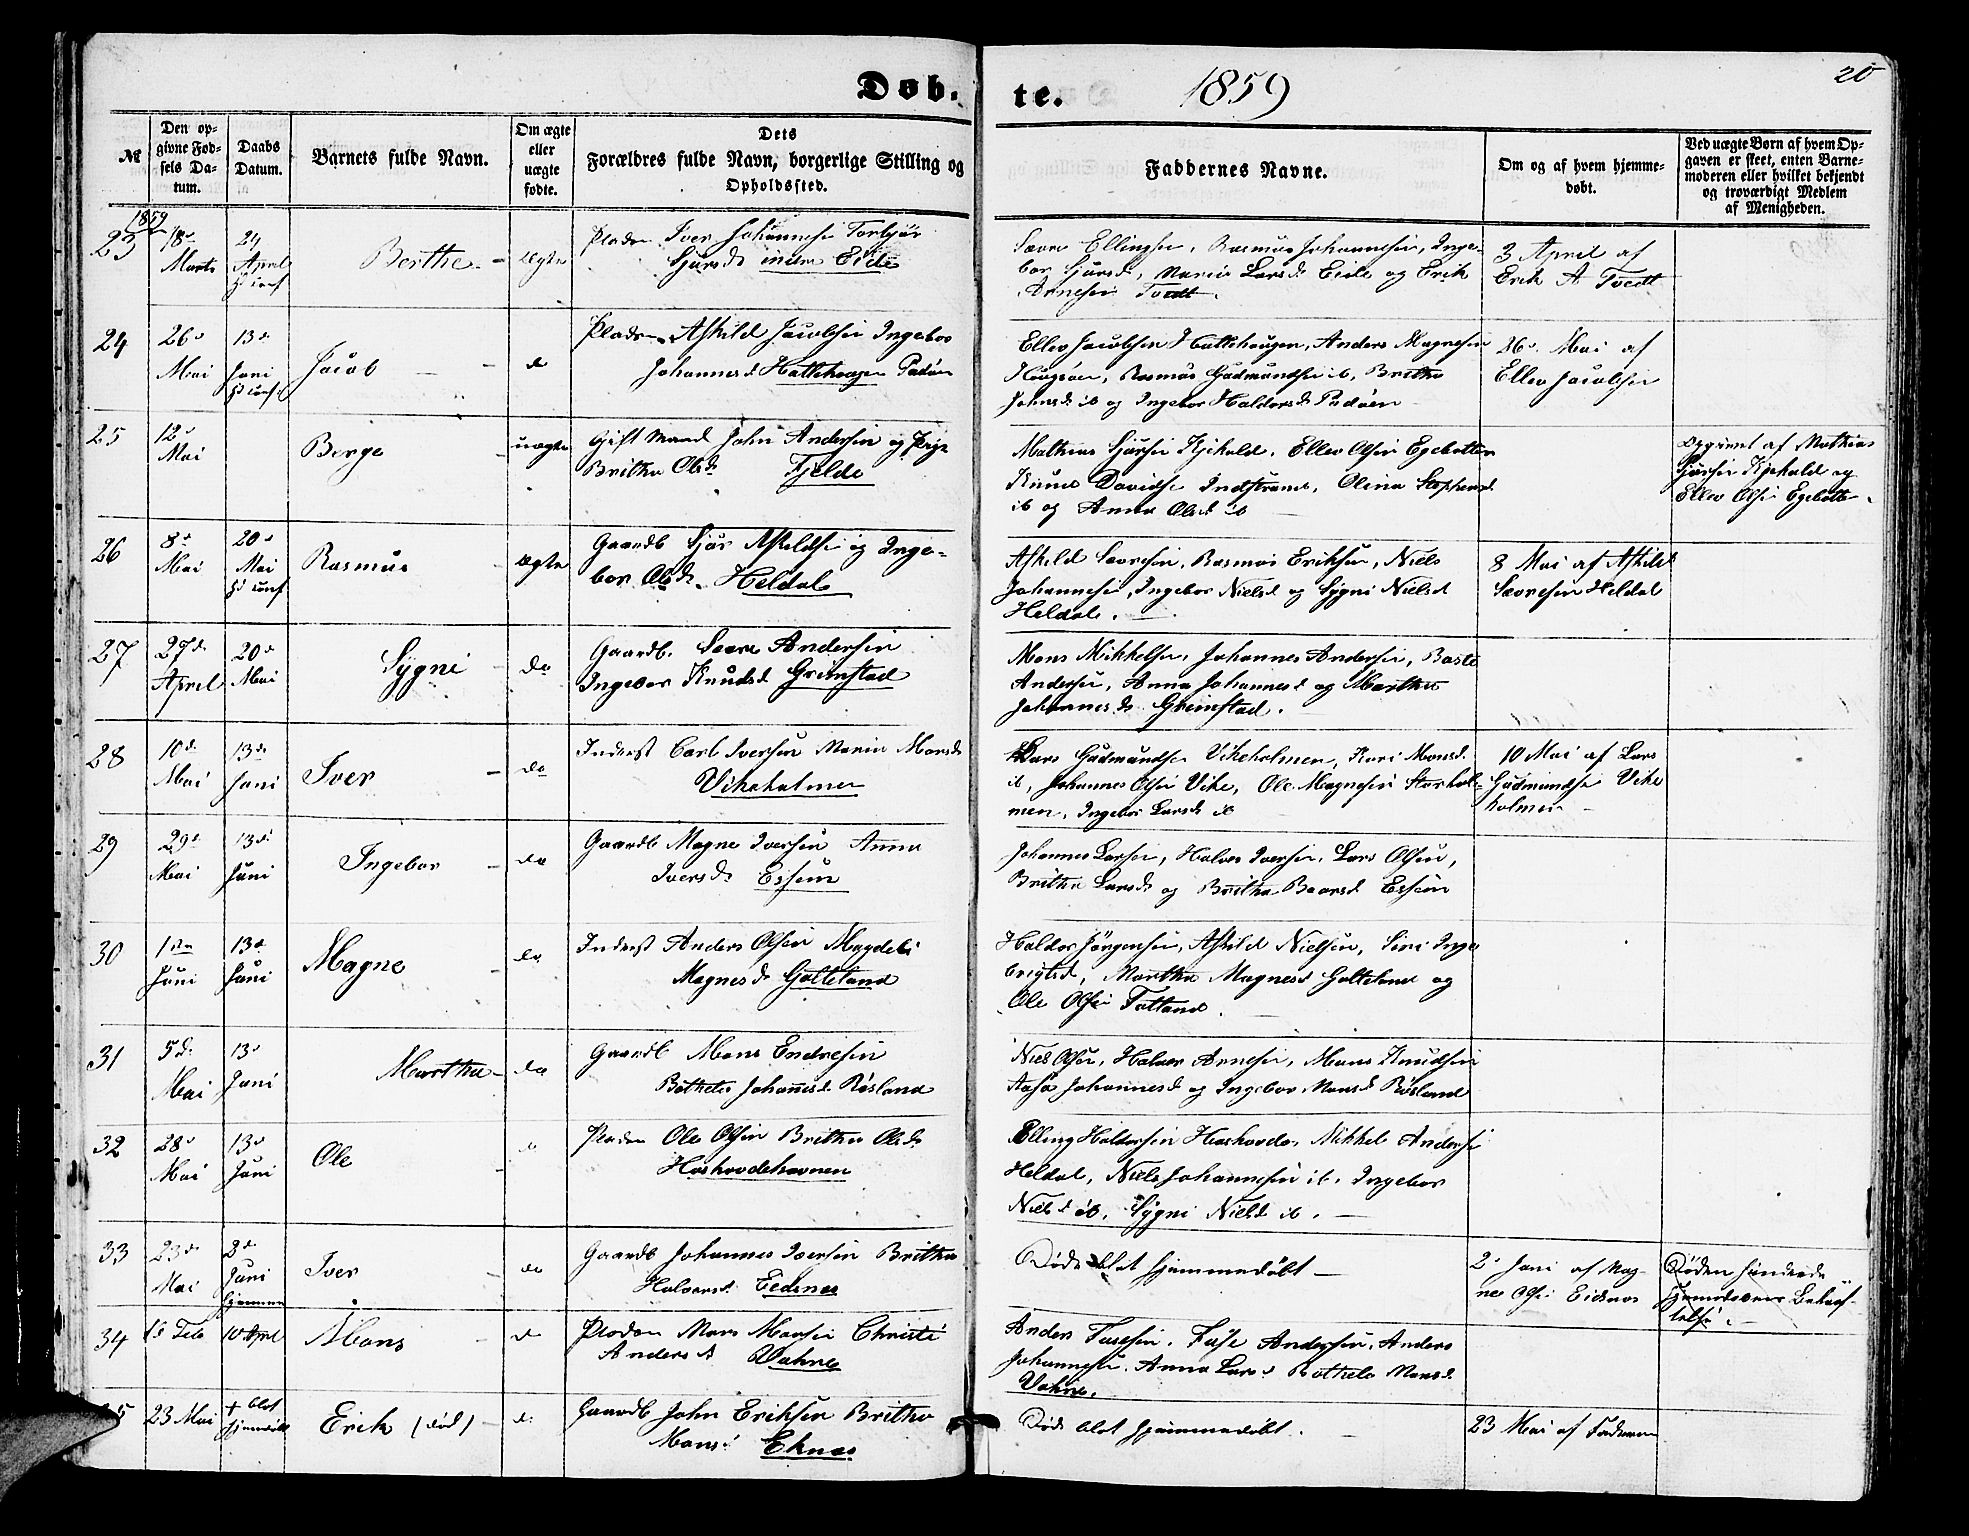 Døb. te. 1859 20
№
Den op-
givne Fød-
sels Da-
tum.
Daabs
Datum.
Barnets fulde Navn.
Om ægte
eller
uægte
fødte.
Dets
Forældres fulde Navn, borgerlige Stilling og
Opholdssted.
Faddernes Navne.
Om og af hvem hjemme-
døbt.
Ved uægte Børn af hvem Op-
gaven er skeet, enten Barne-
moderen eller hvilket bekjendt
og troværdigt Medlem
af Menigheden.
1859
23 18 Marts
24 April
Berthe
ægte
Iver Johannesen Torbjør
Sjursd. indre Eide
Sævre Ellingsen, Rasmus Johannesen, Inge-
bor Sjursd, Maria Larsd. Eide og Erik
Arnesen Tvedt.
3 April af
Erik A Tvedt
24 26 Mai
13 Juni
Jacob
do
Askild Jacobsen Ingebor
Johannesd Hattehaugen
Ellev Jacobsen Hattehaugen, Anders Magnesen
Haugsøen, Rasmus Gudmundsen ib, Britha
Johnsd. ib og Ingebor Haldorsd.
26 Mai af
Ellev Jacobsen
25 12 Mai
Berge
uægte
Gift Mand John Andersen og Pige
Britha Olsd. Fjelde
Mathias Sjursen Kjekald, Ellev Olsen Egebotten
Knud Davidsen Indstrand, Olina Stephensd
ib og Anna Olsd ib
Opgivet af Mathias
Sjursen Kjekald og
Ellev Olsen Egebotten.
26 8 Mai
20 Mai
Rasmus
ægte
Gaardb Sjur Askildsen og Inge-
bor Olsd. Heldal
Askild Sævresen, Rasmus Eriksen, Niels
Johannesen, Ingebor Nielsd og Sygni Nielsd
Heldal.
8 Mai af Askild
Sævresen Heldal
27 27d. April
20 Mai
Sygni
do
Gaardb. Sævre Andersen
Ingebor Knudsd Grimstad
Mons Mikkelsen, Johannes Andersen, Baste
Andersen, Anna Johannesd og Martha
Johannesd. Grimstad.
28 10d. Mai
13d Juni
Iver
do
Inderst Carl Iversen Maria Monsd
Vikeholmen
Lars Gudmundsen Vikeholmen, Kari Monsd.
ib, Johannes Olsen Vike, Ole Magnesen Storhol-
men, Ingebor Larsd ib
10 Mai af Lars
Gudmundsen Vike
holmen
29 29d Mai
13d Juni
Ingebor
do
Gaardb Magne Iversen Anna
Iversd. Essen
Johannes Larsen, Halvor Iversen, Lars Olsen,
Britha Larsd. og Britha Baarsd. Essen
30 1ste Juni
13d Juni
Magne
do
Inderst Anders Olsen Magdeli
Magnesd. Gatteland
Haldor Jørgensen, Askild Nielsen, Siri Inge
brigtsd, Martha Magnesd Gatteland og
Ole Olsen Tatland.
31 5d. Mai
13d Juni
Martha
do
Gaardb Mons Endresen
Bothele Johannesd. Røsland
Niels Olsen, Halvor Arnesen, Mons Knudsen
Aasa Johannesd og Ingebor Monsd Røsland
32 28d Mai
13d Juni
Ole
Ole Olsen Britha Olsd.
Haskordehavnen
Elling Haldorsen, Mikkel Andersen
Heldal, Niels Johannesen ib. Ingebor
Nielsd ib, Sygni Nielsd ib.
33 23d Mai
2d Juni
hjemme
Iver
do
Gaardb Johannes Iversen Britha
Halvorsd Eidsnes
Døde blot hjemmedøbt
2 Juni af Mag-
nes Olsen Eidsnes
Døden hindrede
Hjemmedaabens Bekræf-
telse.
34 10 April
Mons
do
Mons Monsen Christi
Andersd Vahne
Anders Fassesen, Anders
Johannesen, Anna Larsd Bothele Monsd.
Vahne.
23 Mai
+ blot
hjemdøbt
Erik (død)
d.
Gaardb John Eriksen Britha
Monsd Eknes
Død blot hjemmedøbt.
23 Mai af Faderen